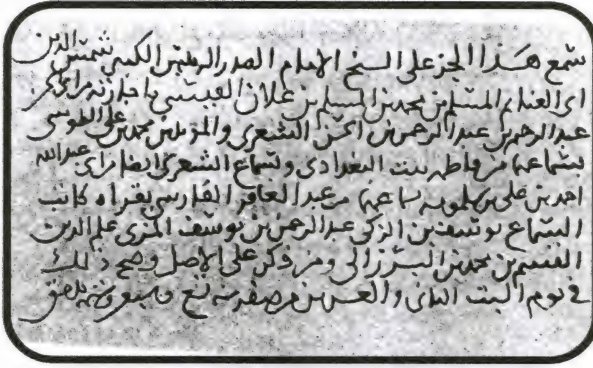 سمع هذا الجز على الشيخ الامام الصدر الكبير شمس الدين
ابي الغنايم المسلم بن محمد بن المسلم بن علان القيسي باجازته من ابي
عبد الرحيم بن عبد الرحمن بن الحسن الشعري والمؤيد بن محمد بن علي الطوسي
بسماعهما من فاطمه بنت البغدادي وبسماع الشعري ايضا من ابي عبد الله
احمد بن علي بن سماعهما من عبد الغافر الفارسي بقراه كاتب
السماع يوسف بن الزكي عبد الرحمن بن يوسف المزي علم الدين
القسم بن محمد بن البرزالي ومن ذكر على الاصل وصح ذلك
في يوم السبت الثاني والعشرين من صفر سنه تسع وسبعين